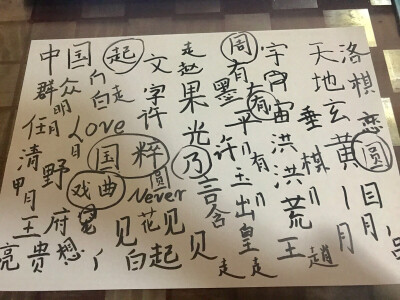 中国 起 文 走 周 字 天 洛
群众 白走 字 赵 有 有 宙 地 棋
明 许 果 墨 玄 恋
任 月 Love 光 平 洪 垂 黄 圆
清 国粹 乃 许 有 洪 棋
野 戏曲 Never 圆 言 主 荒 目
月 花 见 含 出
王 府 见 贝 皇 王 趙 月
亮 贵 想 白 起 走 走